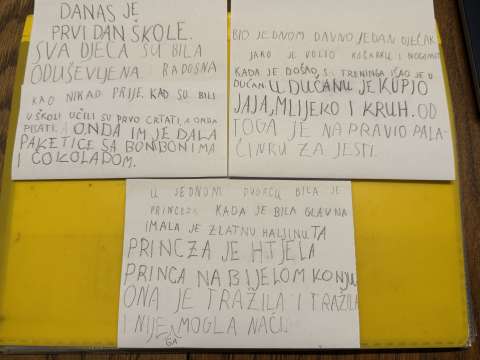 DANAS JE
PRVI DAN ŠKOLE.
SVA DJECA SU BILA
ODUŠEVLJENA I RADOSNA
KAO NIKAD PRIJE. KAD SU BILI
U ŠKOLI UČILI SU PRVO CRTATI, A ONDA
PISATI, A ONDA IM JE DALA
PAKETIĆE SA BONBONIMA
I ČOKOLADOM.
BIO JEDNOM DAVNO JEDAN DJEČAK
JAKO JE VOLIO KOŠARKU I NOGOMET
KADA JE DOŠAO S TRENINGA IŠAO JE U
DUĆAN. U DUĆANU JE KUPIO
JAJA, MLIJEKO I KRUH. OD
TOGA JE NAPRAVIO PALA-
ČINKU ZA JESTI.
U JEDNOM DVORCU BILA JE
PRINCEZA KADA JE BILA GLAVNA
IMALA JE ZLATNU HALJINU TA
PRINCZA JE HTJELA
PRINCA NA BIJELOM KONJU
ONA JE TRAŽILA I TRAŽILA
I NIJE GA MOGLA NAĆI.